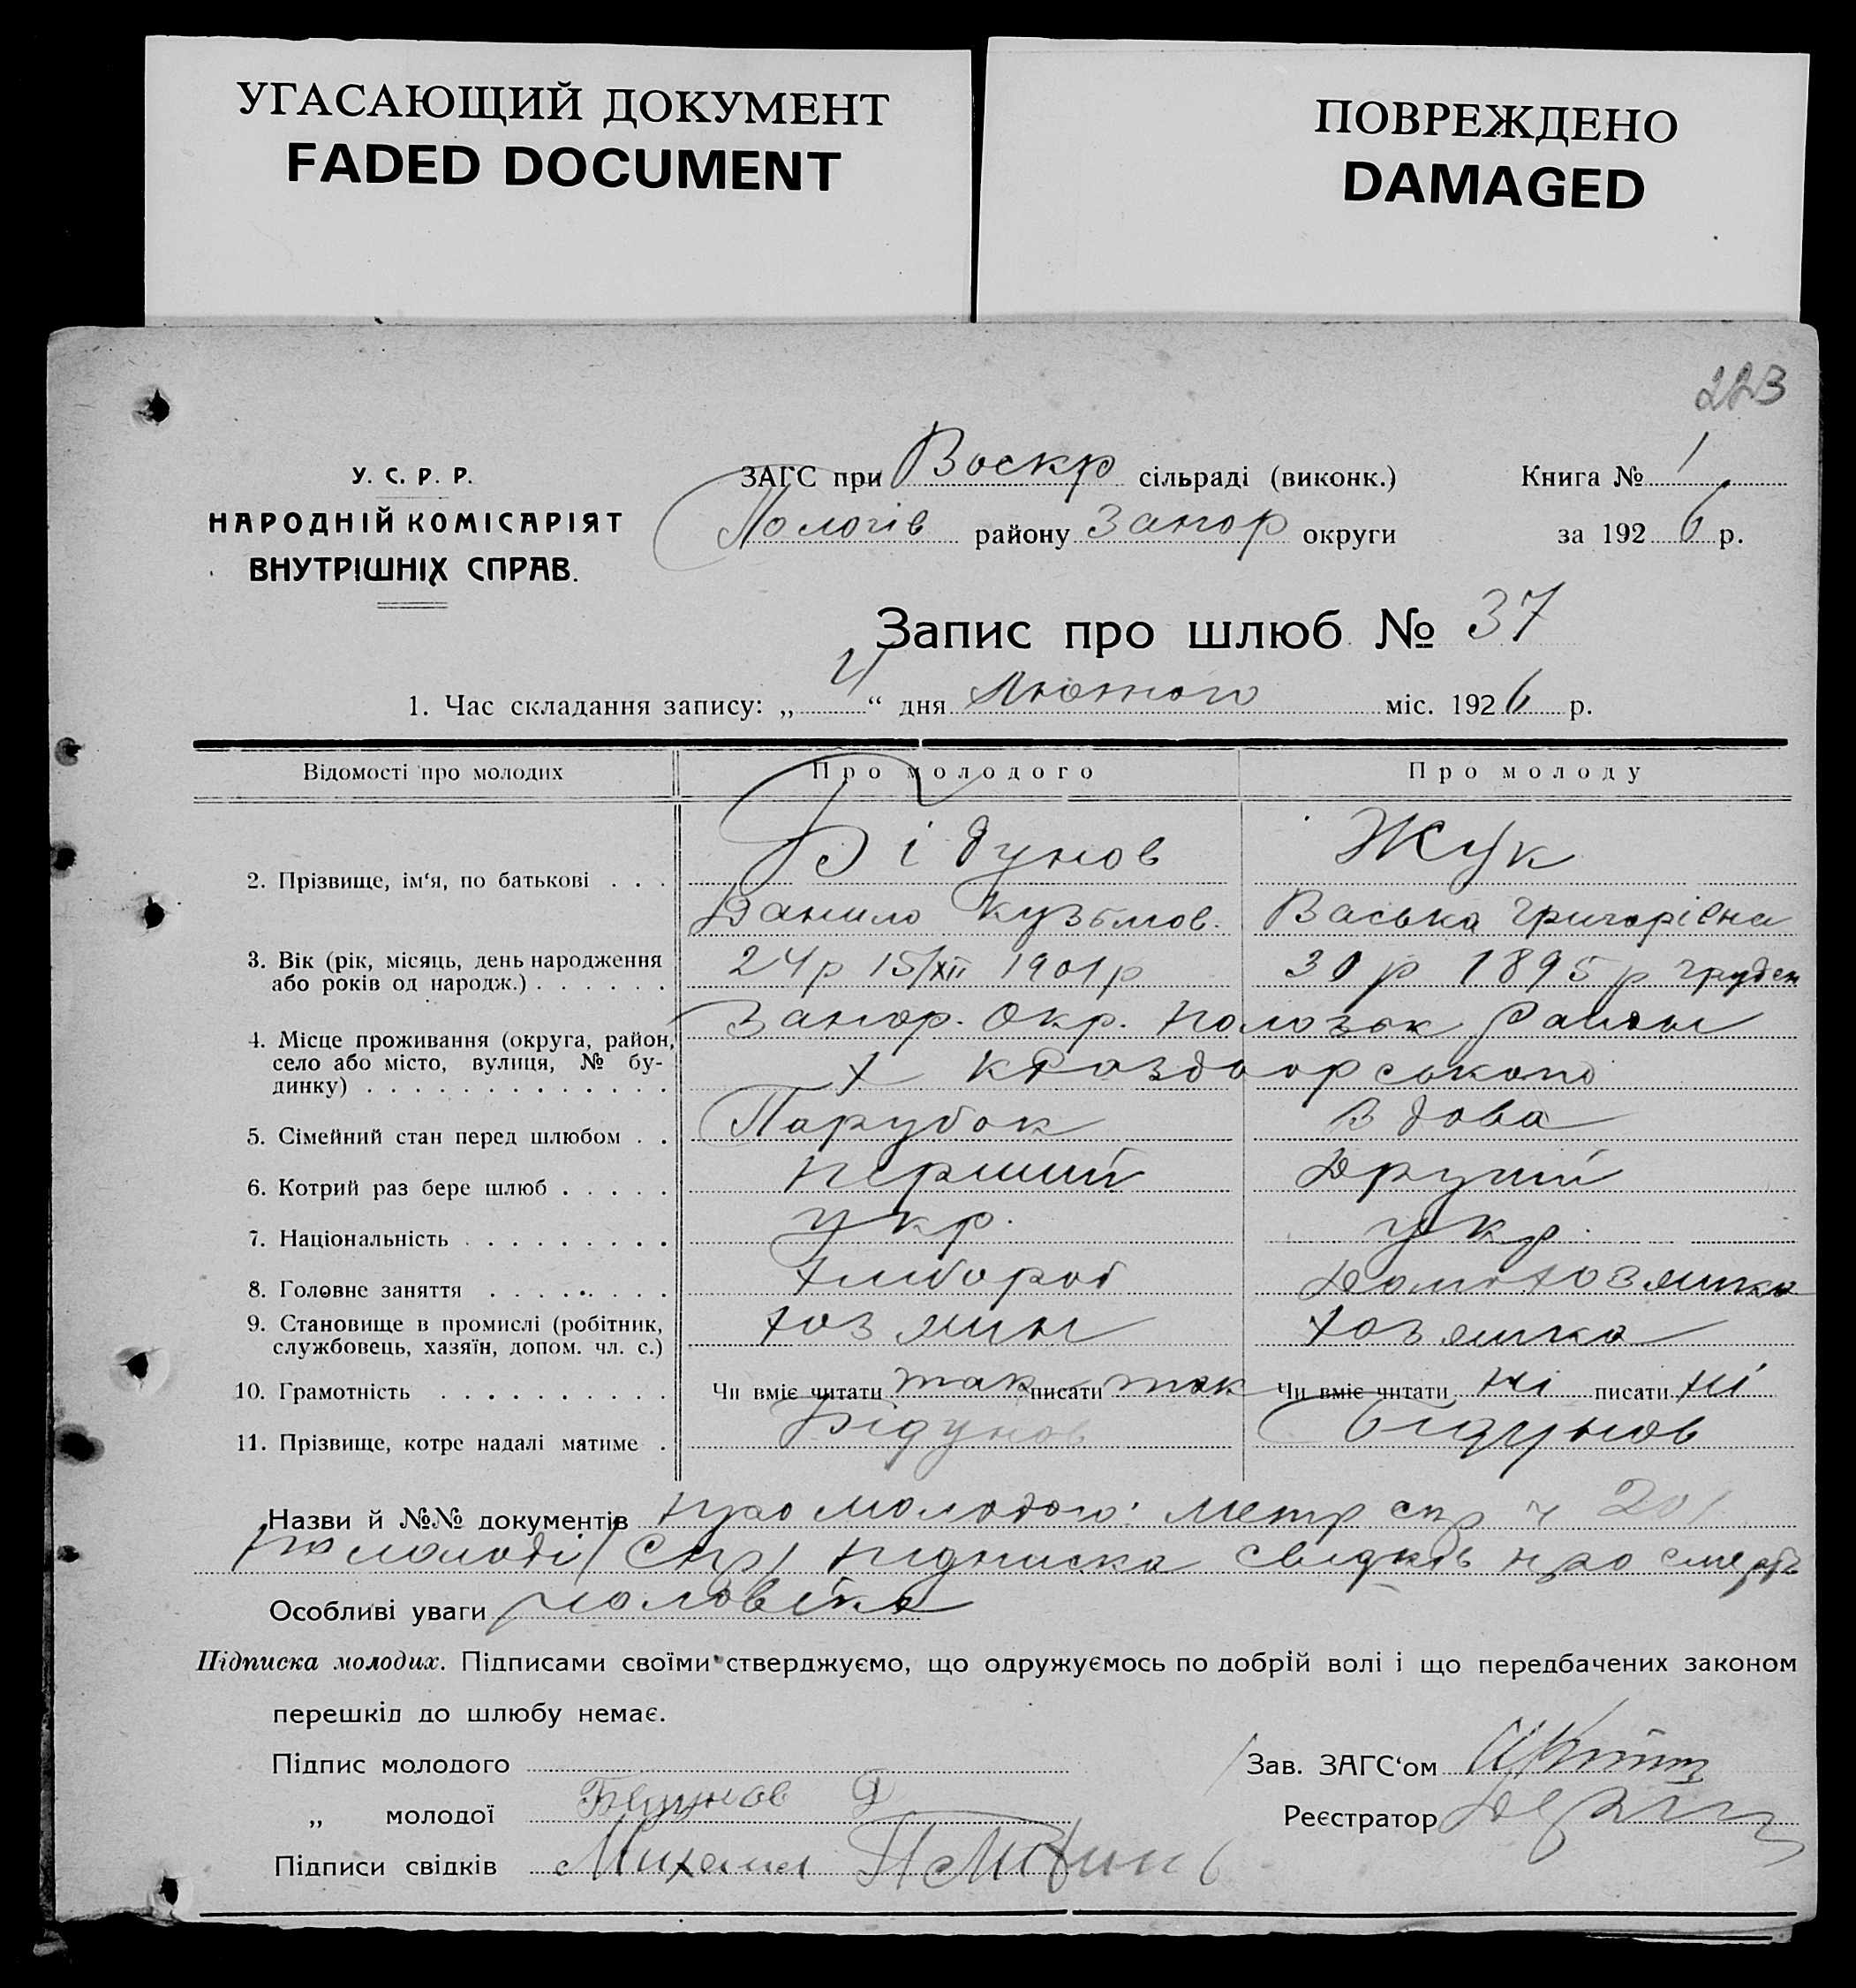 УГАСАЮЩИЙ ДОКУМЕНТ
FADED DOCUMENT
ПОВРЕЖДЕНО
DAMAGED
223
У. С. Р. Р.
НАРОДНІЙ КОМІСАРІЯТ
ВНУТРІШНІХ СПРАВ.
ЗАГС при Воскр сільраді (виконк.) Книга № 1
Пологів району Запор округи за 1926 р.
Запис про шлюб № 37
1. Час складання запису: „4“ дня Лютого міс. 1926 р.
Відомості про молодих Про молодого Про молоду
Бідунов Жук
2. Прізвище, ім‘я, по батькові . . .
Данило Кузьмов. Васька Григорівна
3. Вік (рік, місяць, день народження 24р 15/XII 1901р 30 р 1895 р груден
або років од народж.) . . . . . .
Запор. Окр. Полозьк Району
4. Місце проживання (округа, район,
село або місто, вулиця, № бу-
динку) . . . . . . . . . . . . х
5. Сімейний стан перед шлюбом . . Парубок Вдова
6. Котрий раз бере шлюб . . . . . Перший Другий
7. Національність . . . . . . . . . укр. укр.
8. Головне заняття . . . . . . . . Хлібороб Домохозяйка
9. Становище в промислі (робітник, хозяин хозяйка
службовець, хазяїн, допом. чл. с.)
10. Грамотність . . . . . . . . . . Чи вміє читати так писати так Чи вміє читати ні писати ні
11. Прізвище, котре надалі матиме . Бідунов Бідунов
Назви й №№ документів про молодого: метр спр ч 201
по молоді / спр / підписка свідків про смерть
Особливі уваги чоловіка
Підписка молодих. Підписами своїми стверджуємо, що одружуємось по добрій волі і що передбачених законом
перешкід до шлюбу немає.
Підпис молодого Зав. ЗАГС‘ом
„ молодої Бідунов Д Реєстратор
Підписи свідків Михаил